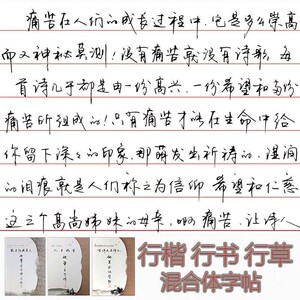 痛苦在人们的成长过程中，它是多么崇高
而又神秘莫测！没有痛苦就没有诗歌，每
首诗几乎都是由一份高兴、一份希望和两份
痛苦所组成的！只有痛苦才能在生命中给
你留下深深的印象。那萌发出祈祷的、湿润
的泪痕就是人们称之为信仰 希望和仁慈
这三个高尚姊妹的母亲，啊 痛苦，让诗人
行楷 行书 行草
混合体字帖